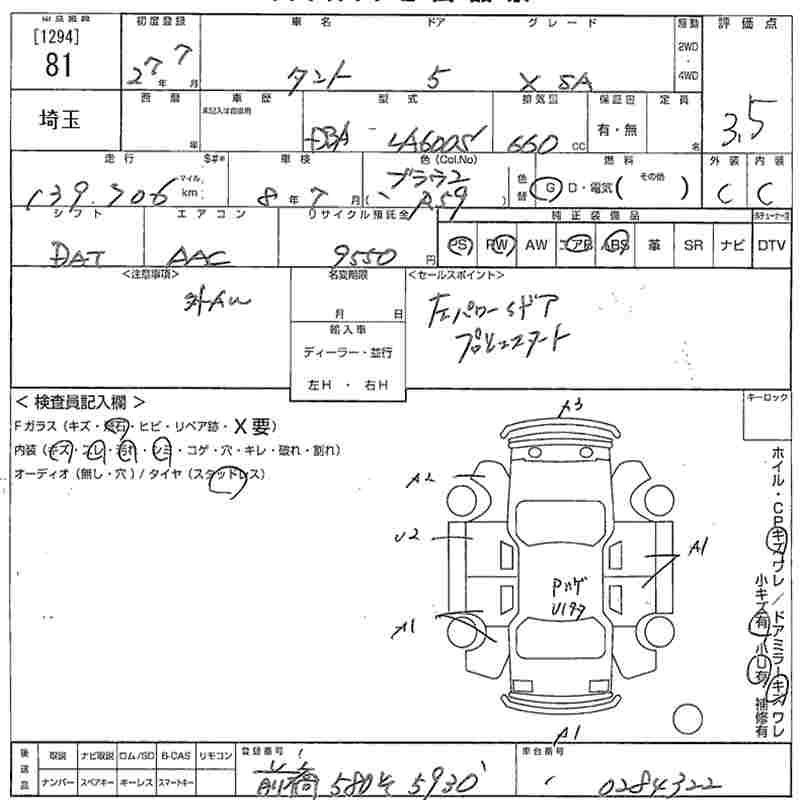 [1294]
81
埼玉
初度登録
27年7月
車名
タント
ドア
5
グレード
X SA
駆動
2WD
・
4WD
評価点
3.5
西暦
年
車歴
未記入は自家用
型式
DBA - LA600S
排気量
660 cc
保証書
有・無
定員
名
走行 $#*
139,706 マイル km
車検
8年7月
色(Col.No)
ブラウン
( A59 )
色替
燃料
G D・電気( その他 )
外装
C
内装
C
シフト
DAT
エアコン
AAC
リサイクル預託金
9550円
純正装備品
PS PW AW エアB ABS 革 SR ナビ DTV
<注意事項>
名変期限
月 日
輸入車
ディーラー・並行
左H ・ 右H
<セールスポイント>
左パワーSドア
プッシュスタート
< 検査員記入欄 >
Fガラス(キズ・飛石・ヒビ・リペア跡・X要)
内装(キズ・スレ・汚れ・シミ・コゲ・穴・キレ・破れ・割れ)
オーディオ(無し・穴)/タイヤ(スタッドレス)
キーロック
A3
A2
U2
A1
A1
Pハゲ
A1
ホイル・CPキズワレ/ドアミラーキズワレ
小キズ有 小U有 補修有
後送品
取説 ナビ取説 ロム/SD B-CAS リモコン
ナンバー スペアキー キーレス スマートキー
登録番号
前橋 580 そ 5930
車台番号
0284322